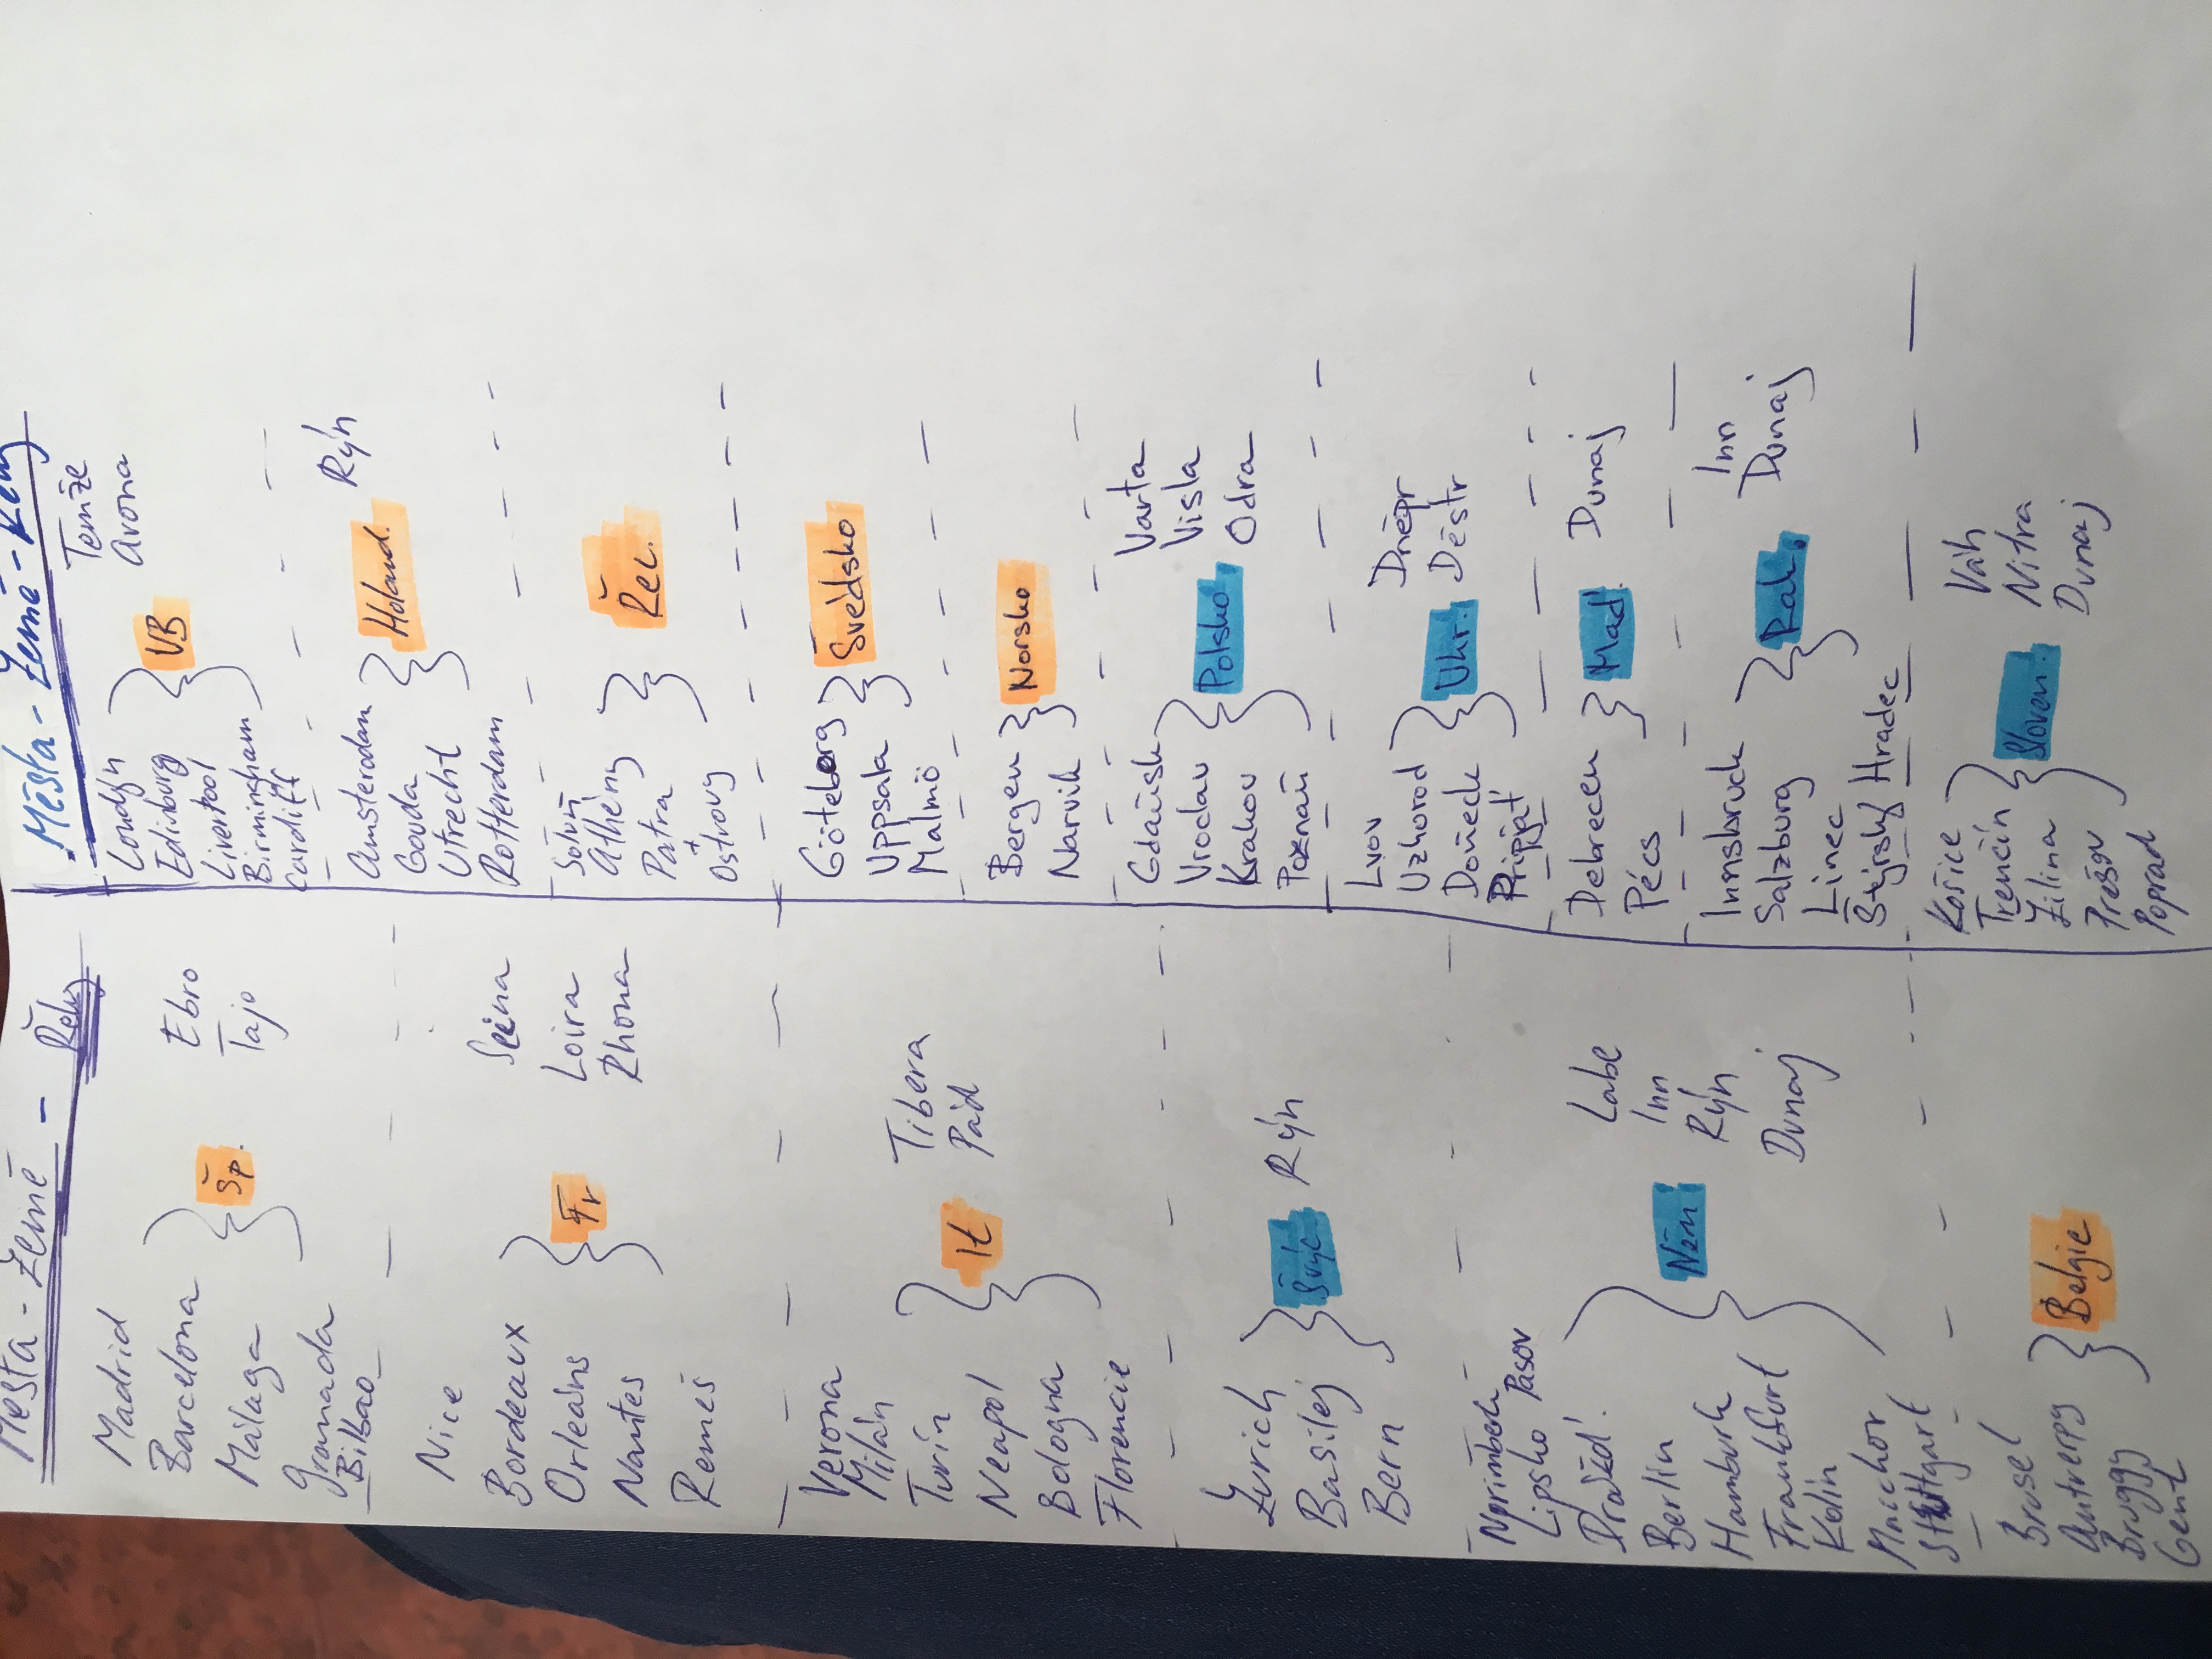 Města - Země - Řeky
Madrid
Barcelona
Málaga
Granada
Bilbao
Šp.
Ebro
Tajo
Nice
Bordeaux
Orleáns
Nantes
Remeš
Fr
Seina
Loira
Rhona
Verona
Milán
Turín
Neapol
Bologna
Florencie
It
Tibera
Pád
Zurich
Basilej
Bern
Švýc.
Rýn
Norimberk
Lipsko Pasov
Drážď.
Berlín
Hamburk
Frankfurt
Kolín
Mnichov
Stuttgart
Něm
Labe
Inn
Rýn
Dunaj
Brusel
Antverpy
Bruggy
Gent
Belgie
Města - Země - Řeky
Londýn
Edinburg
Liverpool
Birmingham
Cardiff
VB
Temže
Avona
Amsterdam
Gouda
Utrecht
Rotterdam
Holand.
Rýn
Soluň
Athény
Patra
+
Ostrovy
Řec.
Göteberg
Uppsala
Malmö
Švédsko
Bergen
Narvik
Norsko
Gdaňsk
Vroclav
Krakov
Poznaň
Polsko
Varta
Visla
Odra
Lvov
Uzhorod
Doněck
Pripjať
Ukr.
Dněpr
Děstr
Debrecen
Pécs
Maď.
Dunaj
Innsbruck
Salzburg
Linec
Štýrský Hradec
Rak.
Inn
Dunaj
Košice
Trenčín
Žilina
Prešov
Poprad
Sloven.
Váh
Nitra
Dunaj